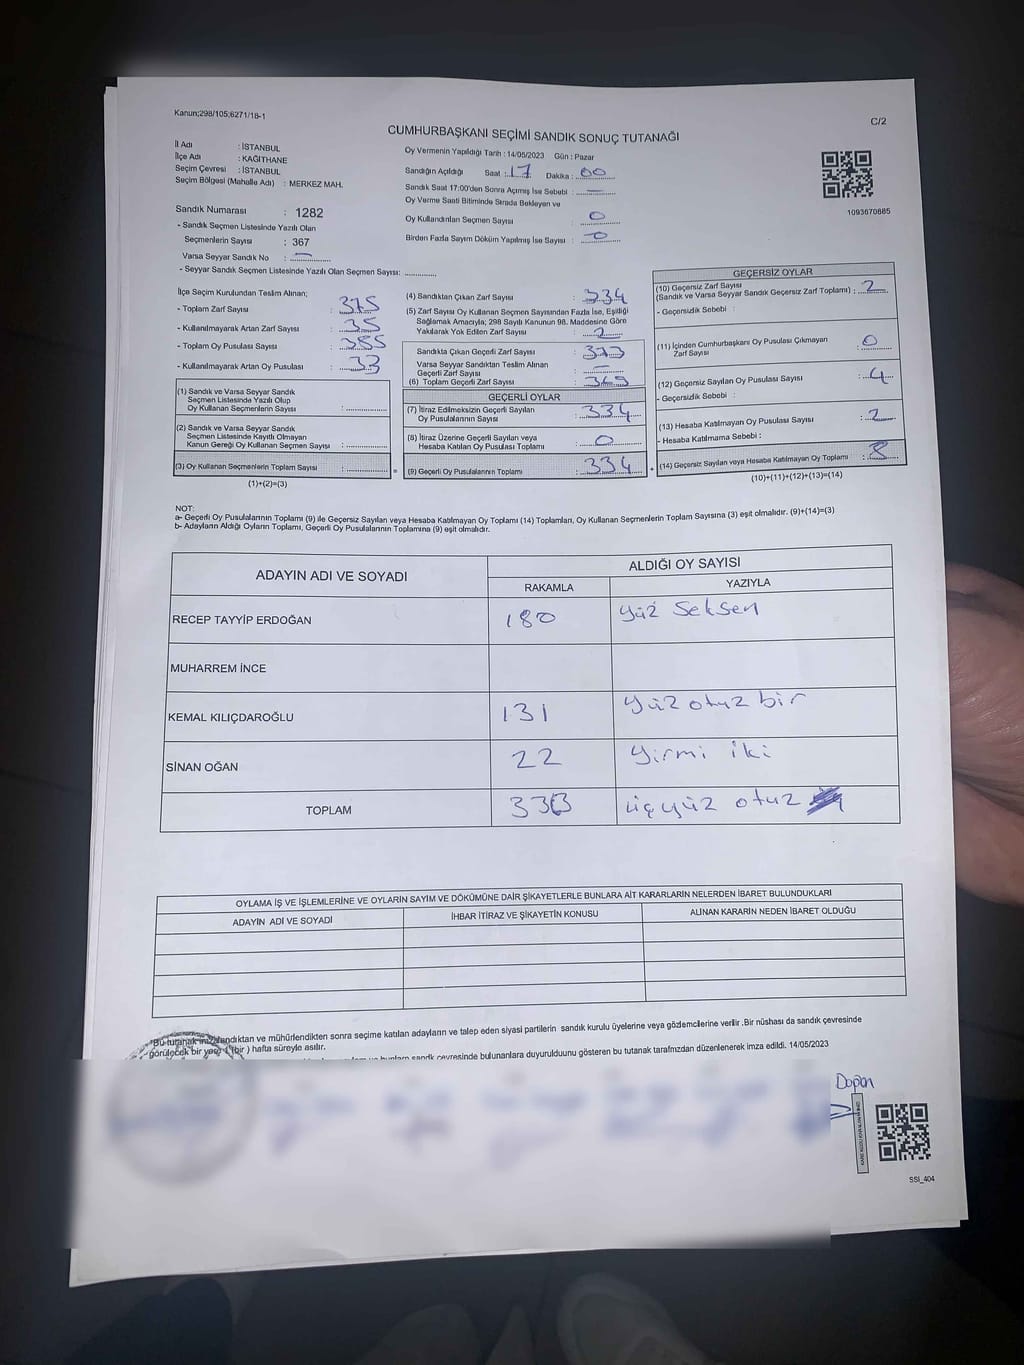 Kanun;298/105;6271/18-1
C/2
CUMHURBAŞKANI SEÇİMİ SANDIK SONUÇ TUTANAĞI
İl Adı : İSTANBUL
İlçe Adı : KAĞITHANE
Seçim Çevresi : İSTANBUL
Seçim Bölgesi (Mahalle Adı) : MERKEZ MAH.
Sandık Numarası : 1282
- Sandık Seçmen Listesinde Yazılı Olan
Seçmenlerin Sayısı : 367
Varsa Seyyar Sandık No : —
- Seyyar Sandık Seçmen Listesinde Yazılı Olan Seçmen Sayısı:
Oy Vermenin Yapıldığı Tarih : 14/05/2023 Gün : Pazar
Sandığın Açıldığı Saat : 17 Dakika : 00
Sandık Saat 17:00'den Sonra Açılmış İse Sebebi : —
Oy Verme Saati Bitiminde Sırada Bekleyen ve
Oy Kullandırılan Seçmen Sayısı : 0
Birden Fazla Sayım Döküm Yapılmış İse Sayısı : 0
1093670885
İlçe Seçim Kurulundan Teslim Alınan;
- Toplam Zarf Sayısı : 375
- Kullanılmayarak Artan Zarf Sayısı : 35
- Toplam Oy Pusulası Sayısı : 385
- Kullanılmayarak Artan Oy Pusulası : 33
(1) Sandık ve Varsa Seyyar Sandık
Seçmen Listesinde Yazılı Olup
Oy Kullanan Seçmenlerin Sayısı :
(2) Sandık ve Varsa Seyyar Sandık
Seçmen Listesinde Kayıtlı Olmayan
Kanun Gereği Oy Kullanan Seçmen Sayısı :
(3) Oy Kullanan Seçmenlerin Toplam Sayısı :
(1)+(2)=(3)
(4) Sandıktan Çıkan Zarf Sayısı : 334
(5) Zarf Sayısı Oy Kullanan Seçmen Sayısından Fazla İse, Eşitliği
Sağlamak Amacıyla; 298 Sayılı Kanunun 98. Maddesine Göre
Yakılarak Yok Edilen Zarf Sayısı : 2
Sandıkta Çıkan Geçerli Zarf Sayısı :
Varsa Seyyar Sandıktan Teslim Alınan
Geçerli Zarf Sayısı : —
(6) Toplam Geçerli Zarf Sayısı :
GEÇERLİ OYLAR
(7) İtiraz Edilmeksizin Geçerli Sayılan
Oy Pusulalarının Sayısı : 334
(8) İtiraz Üzerine Geçerli Sayılan veya
Hesaba Katılan Oy Pusulası Toplamı : 0
(9) Geçerli Oy Pusulalarının Toplamı : 334
GEÇERSİZ OYLAR
(10) Geçersiz Zarf Sayısı
(Sandık ve Varsa Seyyar Sandık Geçersiz Zarf Toplamı) : 2
- Geçersizlik Sebebi :
(11) İçinden Cumhurbaşkanı Oy Pusulası Çıkmayan
Zarf Sayısı : 0
(12) Geçersiz Sayılan Oy Pusulası Sayısı : 4
- Geçersizlik Sebebi :
(13) Hesaba Katılmayan Oy Pusulası Sayısı : 2
- Hesaba Katılmama Sebebi :
(14) Geçersiz Sayılan veya Hesaba Katılmayan Oy Toplamı : 8
(10)+(11)+(12)+(13)=(14)
NOT:
a- Geçerli Oy Pusulalarının Toplamı (9) ile Geçersiz Sayılan veya Hesaba Katılmayan Oy Toplamı (14) Toplamları, Oy Kullanan Seçmenlerin Toplam Sayısına (3) eşit olmalıdır. (9)+(14)=(3)
b- Adayların Aldığı Oyların Toplamı, Geçerli Oy Pusulalarının Toplamına (9) eşit olmalıdır.
ADAYIN ADI VE SOYADI ALDIĞI OY SAYISI
RAKAMLA YAZIYLA
RECEP TAYYİP ERDOĞAN 180 yüz seksen
MUHARREM İNCE
KEMAL KILIÇDAROĞLU 131 yüz otuz bir
SİNAN OĞAN 22 yirmi iki
TOPLAM 333 üçyüz otuz
OYLAMA İŞ VE İŞLEMLERİNE VE OYLARIN SAYIM VE DÖKÜMÜNE DAİR ŞİKAYETLERLE BUNLARA AİT KARARLARIN NELERDEN İBARET BULUNDUKLARI
ADAYIN ADI VE SOYADI İHBAR İTİRAZ VE ŞİKAYETİN KONUSU ALINAN KARARIN NEDEN İBARET OLDUĞU
"Bu tutanak imzalandıktan ve mühürlendikten sonra seçime katılan adayların ve talep eden siyasi partilerin sandık kurulu üyelerine veya gözlemcilerine verilir .Bir nüshası da sandık çevresinde
görülecek bir yere 1 (bir ) hafta süreyle asılır.
sandık çevresinde bulunanlara duyurulduunu gösteren bu tutanak tarafımızdan düzenlenerek imza edildi. 14/05/2023
Dogan
SSI_404